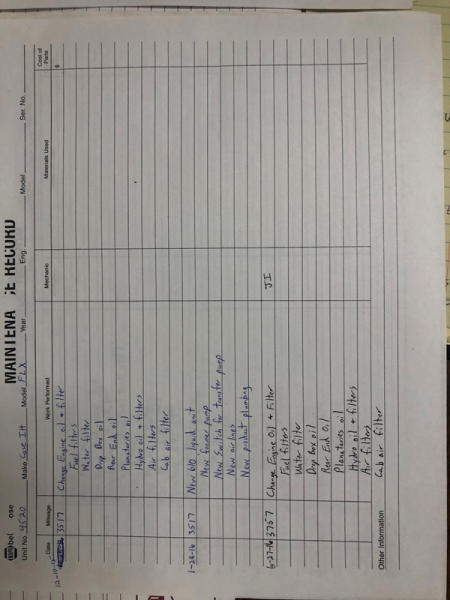 MAINTENA CE RECORD
Unit No. 4520 Make Case IH Model FLX Year Eng. Model Ser. No.
Date Mileage Work Performed Mechanic Materials Used Cost of Parts
3517 Change Engine oil + filter $
Fuel filters
Water filter
Drop Box oil
Rear End oil
Planataries oil
Hydro oil + filters
Air filters
Cab air filter
1-28-16 3517 New liquid unit
New foamer pump
New Switch for transfer pump
New airlines
New product plumbing
6-27-16 3757 Change Engine Oil + Filter JI
Fuel filters
Water filter
Drop Box oil
Rear End Oil
Planataries oil
Hydro oil + filters
Air filters
Cab air filter
Other Information